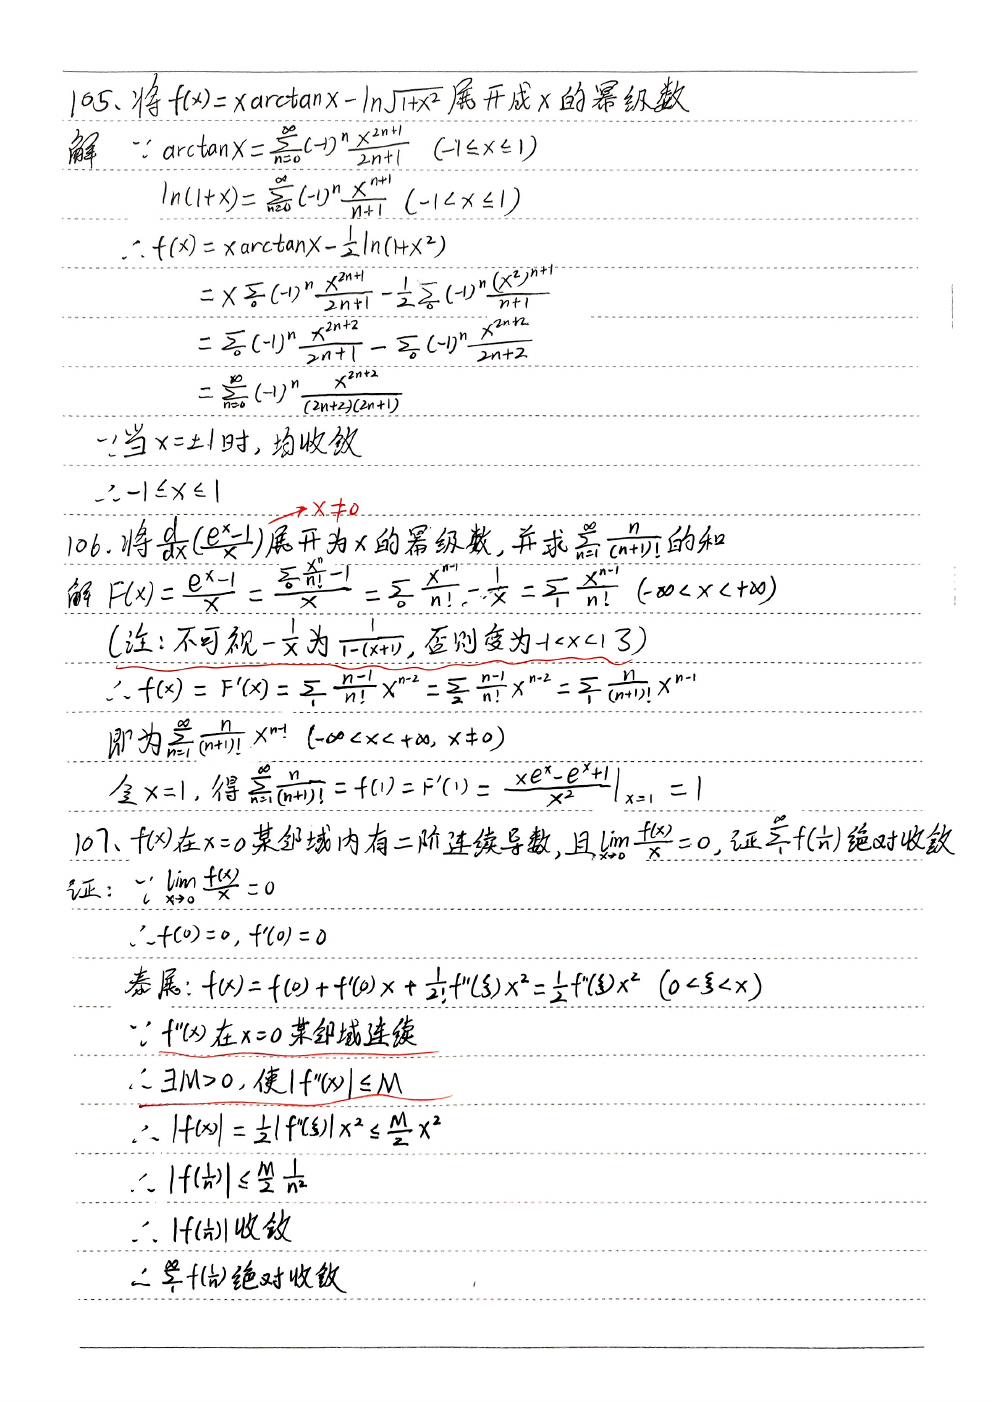 105、将f(x)=xarctanx-ln√(1+x²) 展开成x的幂级数
解 ∵ arctanx=∑_{n=0}^{∞}(-1)^n x^{2n+1}/(2n+1) (-1≤x≤1)
ln(1+x)=∑_{n=0}^{∞}(-1)^n x^{n+1}/(n+1) (-1<x≤1)
∴f(x)=xarctanx-½ln(1+x²)
=x∑_0(-1)^n x^{2n+1}/(2n+1) - ½∑_0(-1)^n (x²)^{n+1}/(n+1)
=∑_0(-1)^n x^{2n+2}/(2n+1) - ∑_0(-1)^n x^{2n+2}/(2n+2)
=∑_{n=0}^{∞}(-1)^n x^{2n+2}/((2n+2)(2n+1))
∵当x=±1时,均收敛
∴-1≤x≤1
→x≠0
106.将d/dx((e^x-1)/x)展开为x的幂级数,并求∑_{n=1}^{∞} n/(n+1)!的和
解 F(x)=(e^x-1)/x=(∑_0 x^n/n! -1)/x=∑_0 x^{n-1}/n! - 1/x=∑_1 x^{n-1}/n! (-∞<x<+∞)
(注:不可视-1/x为1/(1-(x+1)),否则变为-1<x<1了)
∴f(x)=F'(x)=∑_1 (n-1)/n! x^{n-2}=∑_2 (n-1)/n! x^{n-2}=∑_1 n/(n+1)! x^{n-1}
即为∑_{n=1}^{∞} n/(n+1)! x^{n-1} (-∞<x<+∞, x≠0)
令x=1,得∑_{n=1}^{∞} n/(n+1)!=f(1)=F'(1)=(xe^x-e^x+1)/x²|_{x=1}=1
107、f(x)在x=0某邻域内有二阶连续导数,且lim_{x→0} f(x)/x=0,证∑_1^∞ f(1/n)绝对收敛
证:∵ lim_{x→0} f(x)/x=0
∴f(0)=0, f'(0)=0
泰展:f(x)=f(0)+f'(0)x+1/2! f''(ξ)x²=½f''(ξ)x² (0<ξ<x)
∵ f''(x)在x=0某邻域连续
∴∃M>0,使|f''(x)|≤M
∴|f(x)|=½|f''(ξ)|x²≤M/2 x²
∴|f(1/n)|≤M/2 1/n²
∴|f(1/n)|收敛
∴∑_1^∞ f(1/n)绝对收敛